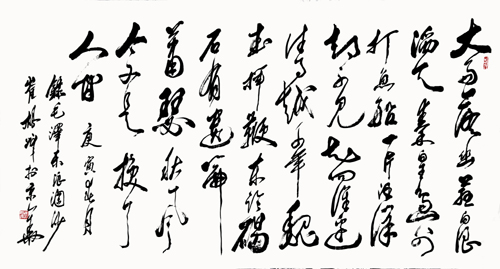 大雨落幽燕白浪
滔天秦皇岛外
打鱼船一片汪洋
都不见知向谁边
往事越千年魏
武挥鞭东临碣
石有遗篇
萧瑟秋风
今又是换了
人间 庚寅 月
录毛泽东浪淘沙
崔 于京